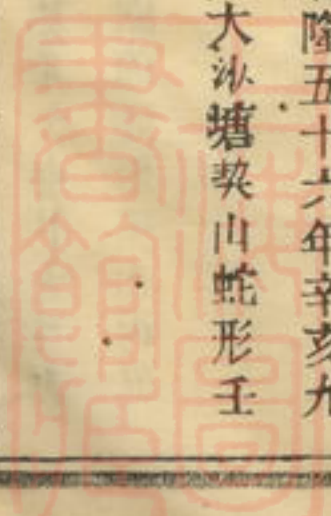 隆五十六年辛亥九
大沙塘契山蛇形壬